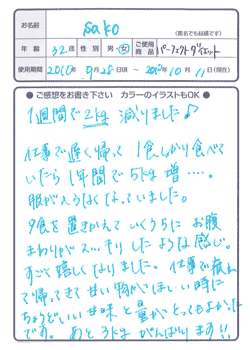 お名前 sako (匿名でも結構です)
年齢 32歳 性別 男・女 ご使用商品 パーフェクトダイエット
使用期間 2010年9月28日頃 〜 2010年10月11日(現在)
●ご感想をお書き下さい カラーのイラストもOK●
1週間で2kg減りました♪
仕事で遅く帰って1食しか食べて
いたら1年間で5kg増…。
服が入らなくなっていました。
夕食を置きかえていくうちにお腹
まわりがスッキリしたような感じ。
すごく嬉しくなりました。仕事で疲れ
て帰ってきて甘い物がほしい時に
ちょうどいい甘味と量がとってもよかった
です。あと3kgがんばります!!